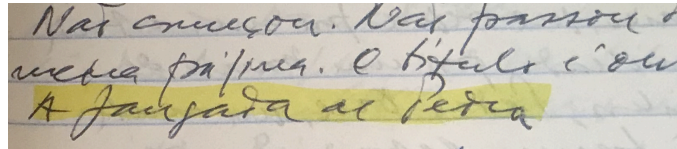 Não começou. Não passou
meia página. O título é
A Jangada de Pedra